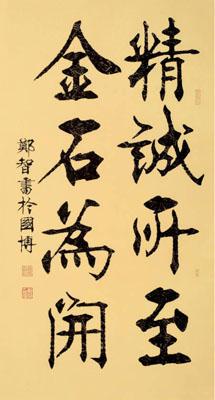 精誠所至
金石為開
鄭智書於國博